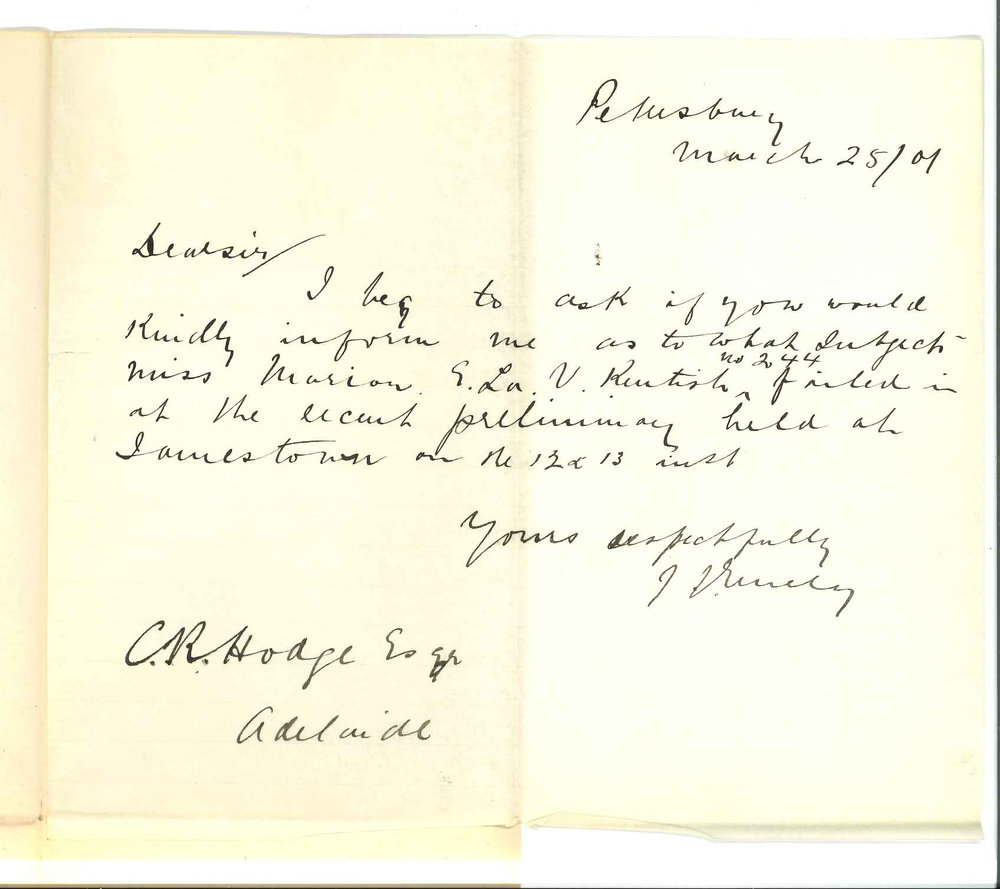 Petersburg
March 25/01
Dear sir/
I beg to ask if you would
Kindly inform me as to what Subjects
miss Marion E. La. V. Kentish no 244 failed in
at the recent preliminary held at
Jamestown on the 12 & 13 inst
Yours respectfully
C.R. Hodge Esqr
Adelaide